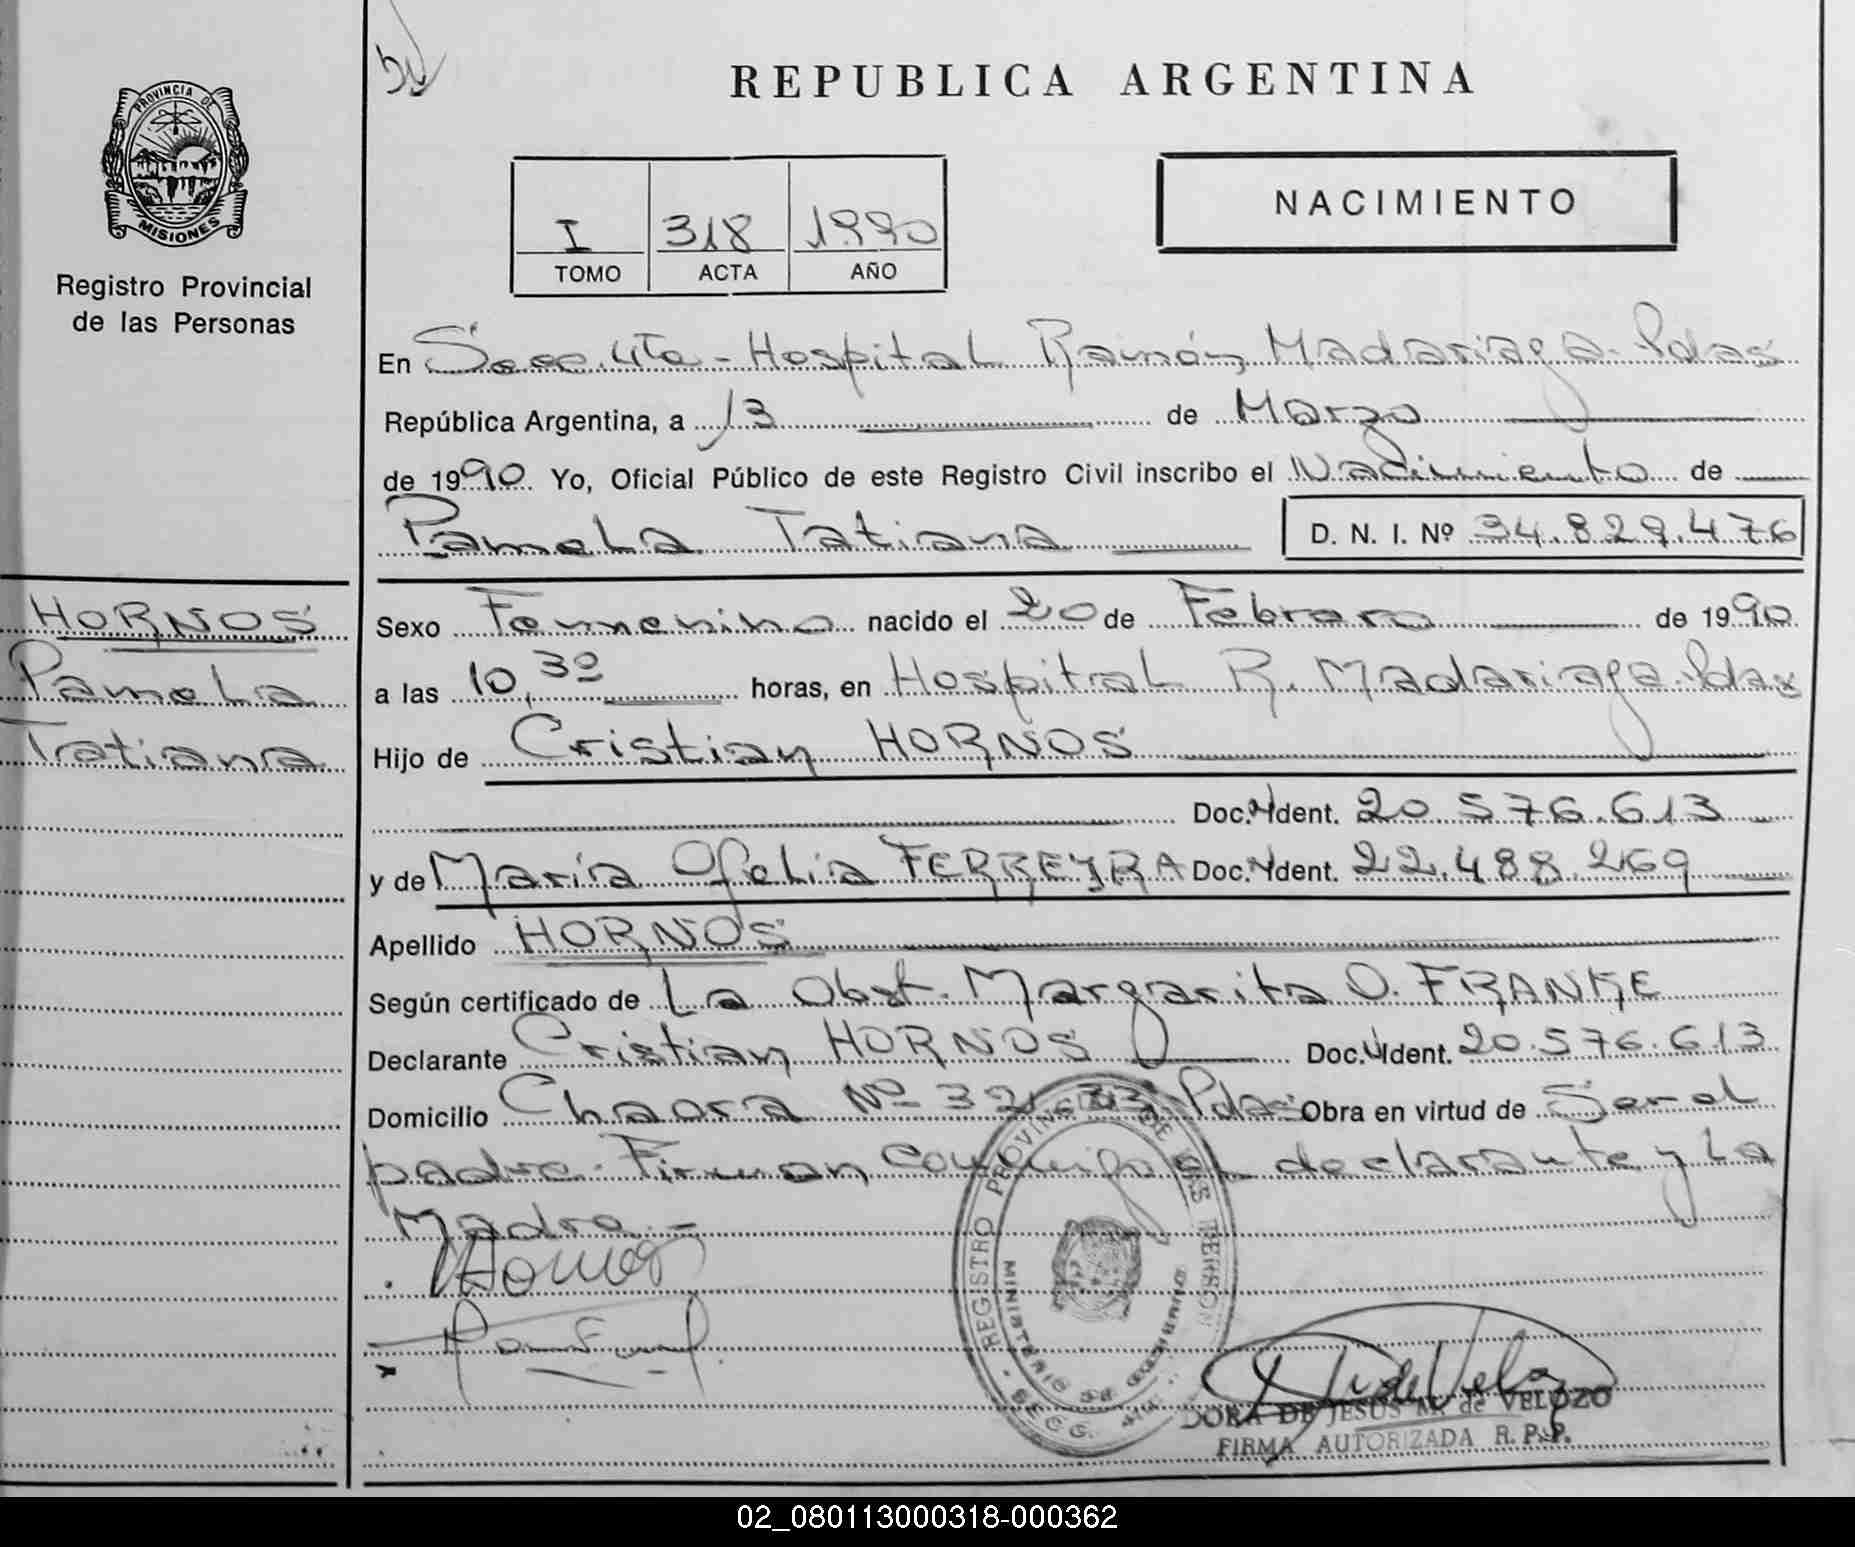 PROVINCIA DE
MISIONES
Registro Provincial
de las Personas
HORNOS
Pamela
Tatiana
REPUBLICA ARGENTINA
I 318 1990
TOMO ACTA AÑO
NACIMIENTO
En Secc. 4ta - Hospital Ramón Madariaga - Pdas
República Argentina, a 13 de Marzo
de 1990 Yo, Oficial Público de este Registro Civil inscribo el Nacimiento de
Pamela Tatiana D. N. I. Nº 34.829.476
Sexo Femenino nacido el 20 de Febrero de 1990
a las 10,30 horas, en Hospital R. Madariaga - Pdas
Hijo de Cristian HORNOS
Doc. Ident. 20.576.613
y de María Ofelia FERREYRA Doc. Ident. 22.488.269
Apellido HORNOS
Según certificado de La Obst. Margarita O. FRANKE
Declarante Cristian HORNOS Doc. Ident. 20.576.613
Domicilio Chacra Nº 32/33 Pdas Obra en virtud de Ser el
padre - Firman conmigo el declarante y La
Madre.-
REGISTRO PROVINCIAL DE LAS PERSONAS
MINISTERIO DE GOBIERNO
SECC. 4ta.
DORA DE JESUS M. de VELOZO
FIRMA AUTORIZADA R. P. P.
02_080113000318-000362